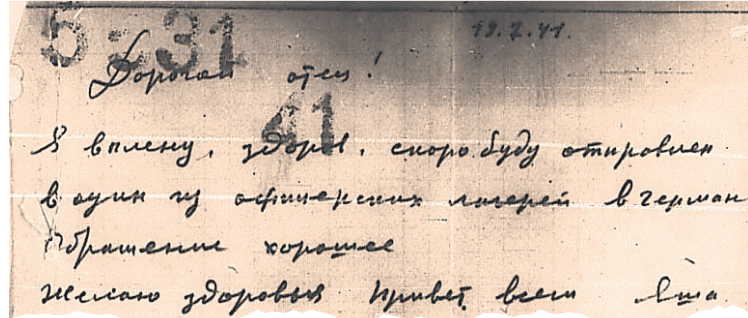 5 31
19.7.41.
Дорогой отец!
41
Я в плену, здоров, скоро буду отправлен
в один из офицерских лагерей в Герман
Обращение хорошее
Желаю здоровья Привет всем Яша